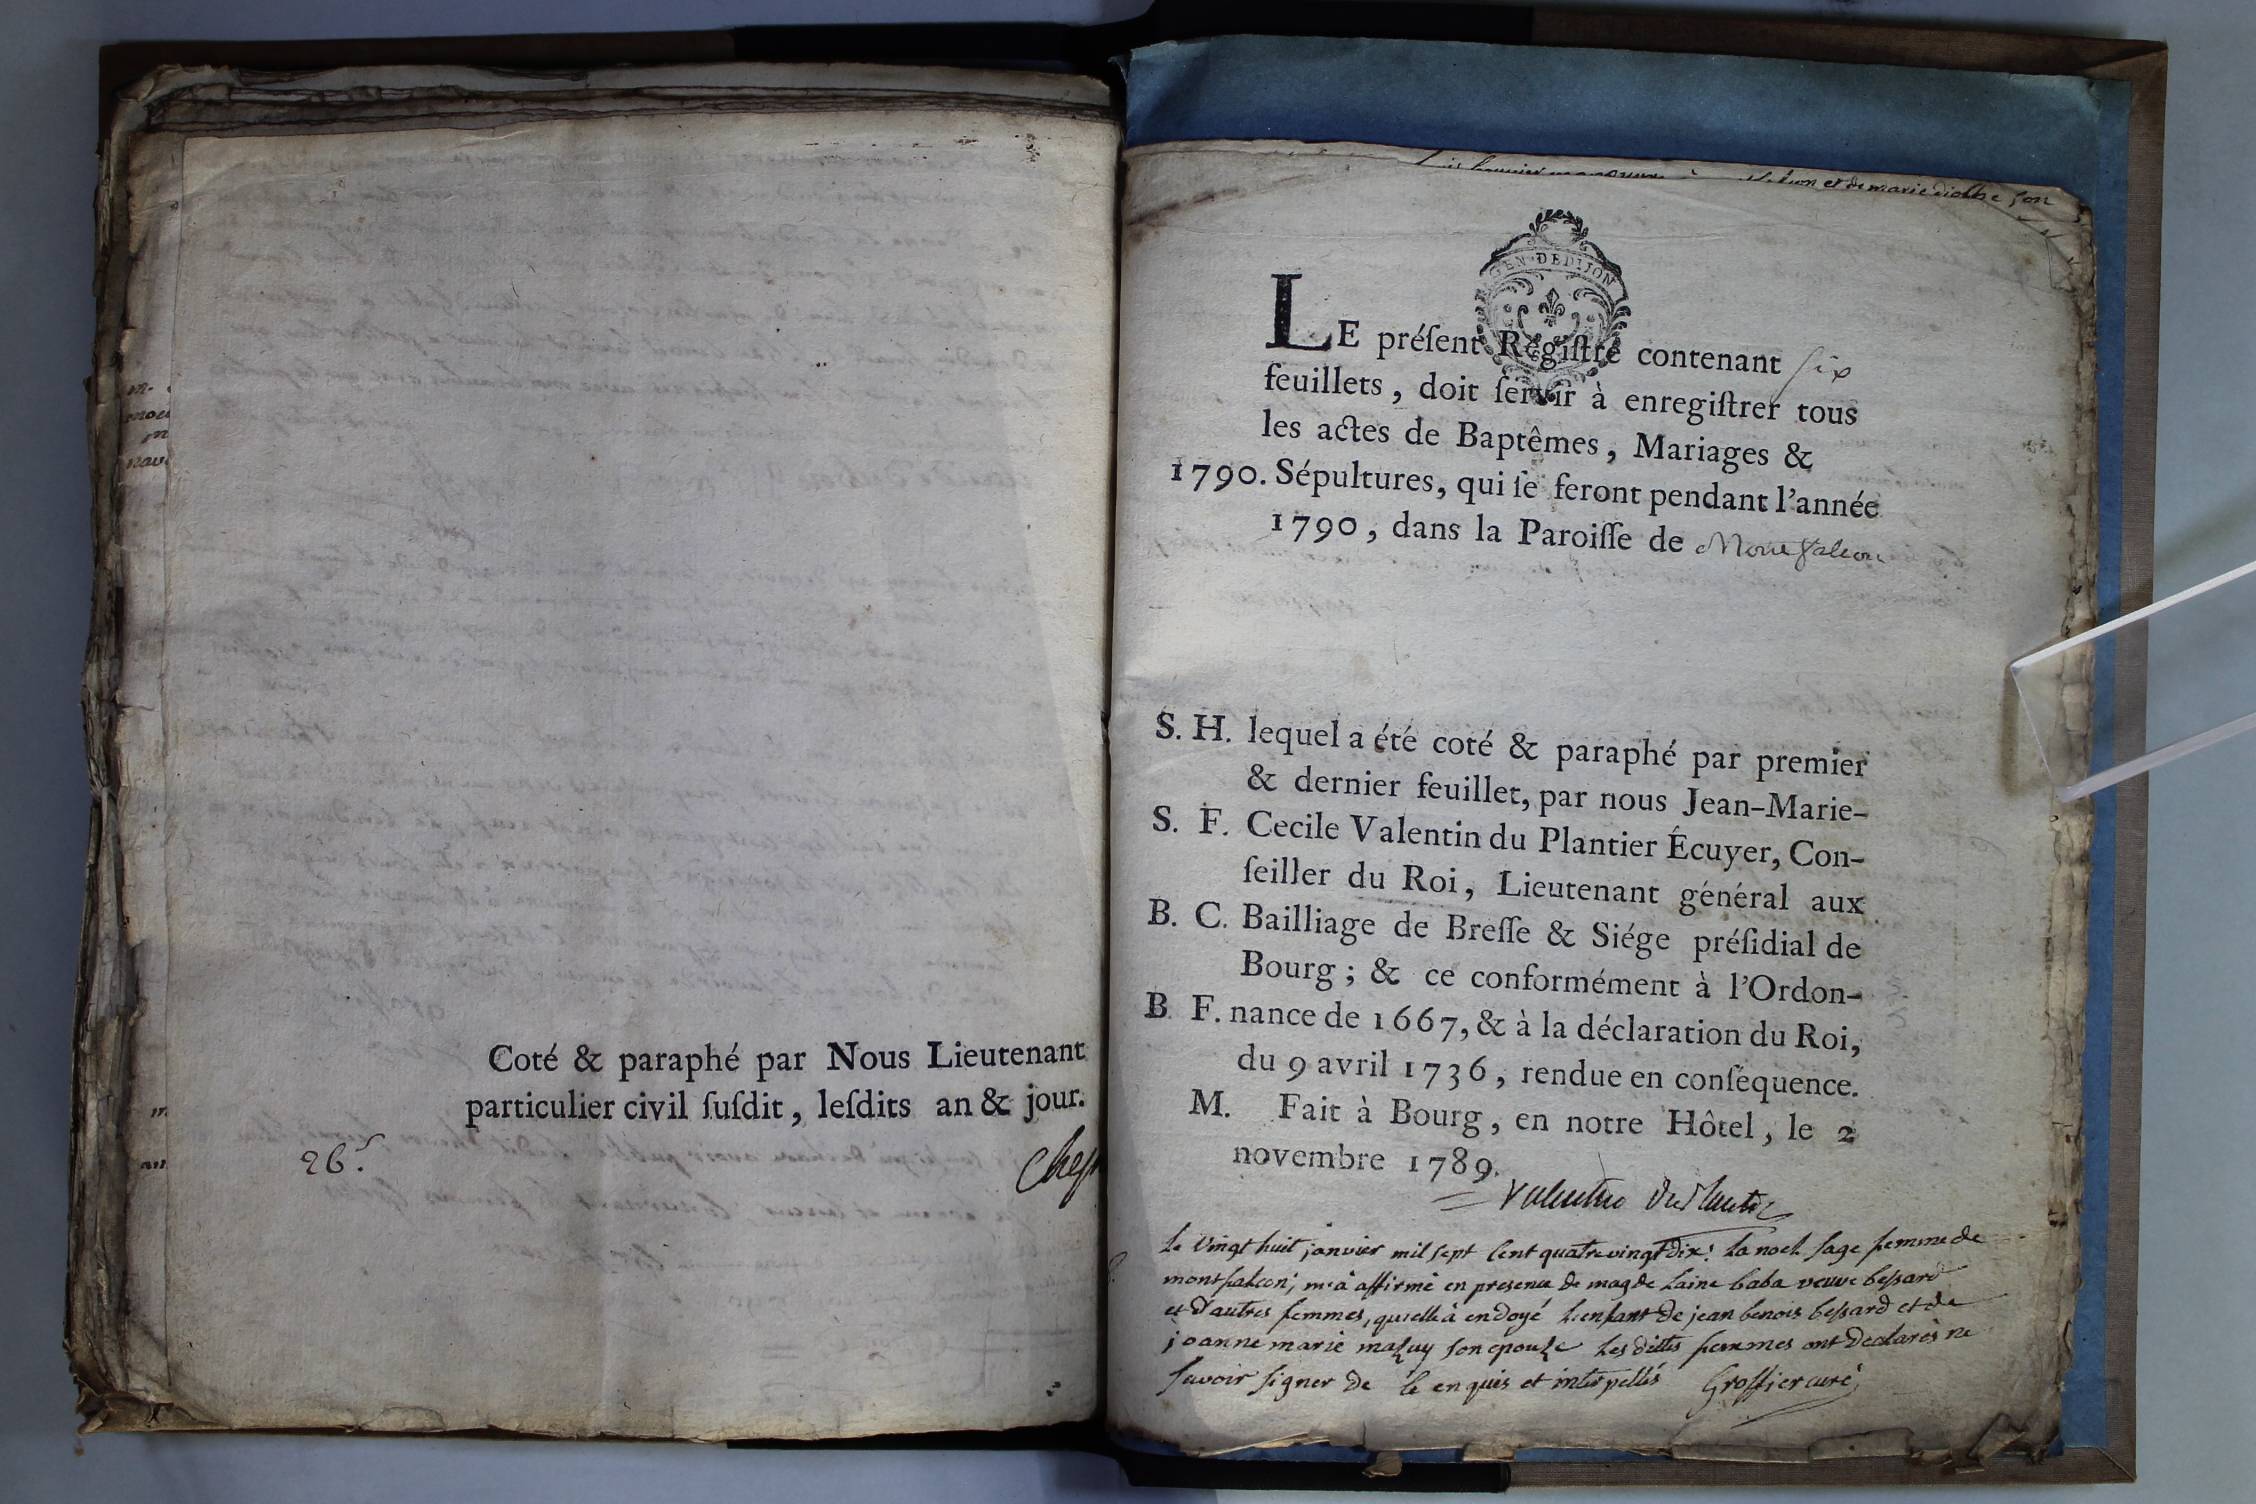 Coté & paraphé par Nous Lieutenant
particulier civil ſuſdit, leſdits an & jour.
26.
m.
m
GEN·DEDIJON
et de marie son
LE préſent Regiſtre contenant six
feuillets, doit ſervir à enregiſtrer tous
les actes de Baptêmes, Mariages &
1790. Sépultures, qui ſe feront pendant l'année
1790, dans la Paroiſſe de Montfalcon
S. H. lequel a été coté & paraphé par premier
& dernier feuillet, par nous Jean-Marie-
S. F. Cecile Valentin du Plantier Écuyer, Con-
ſeiller du Roi, Lieutenant général aux
B. C. Bailliage de Breſſe & Siége préſidial de
Bourg; & ce conformément à l'Ordon-
B F. nance de 1667, & à la déclaration du Roi,
du 9 avril 1736, rendue en conſéquence.
M. Fait à Bourg, en notre Hôtel, le 2
novembre 1789.
Valentin Duplantier
Le vingt huit janvier mil sept cent quatre vingt dix; la noel sage femme de
montfalcon; m'a affirmé en presence de magdelaine baba veuve bessard
et d'autres femmes, qu'elle à endoyé l'enfant de jean benois bessard et de
joanne marie mazuy son epouze les dittes femmes ont declarés ne
savoir signer de ce enquis et interpellés Groffier curé